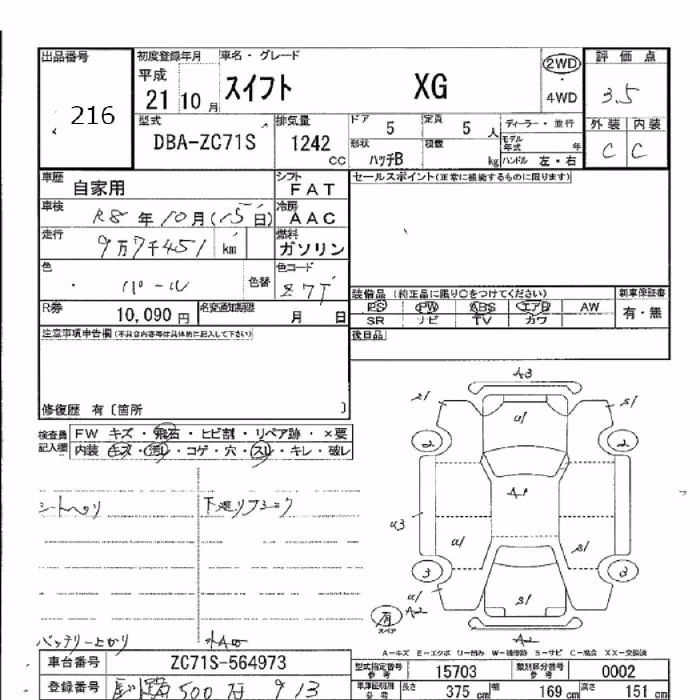 出品番号
216
初度登録年月
平成
21 10 月
車名・グレード
スイフト XG
2WD
4WD
評価点
3.5
外装 内装
C C
型式
DBA-ZC71S
排気量
1242
CC
ドア
5
定員
5 人
形状
ハッチB
積載
kg
ディーラー・並行
モデル年式 年
ハンドル 左・右
車歴
自家用
シフト
FAT
車検
R8 年 10 月 (15日)
冷房
AAC
走行
9万7千451 km
燃料
ガソリン
色
パール
色替
色コード
Z7T
R券
10,090 円
名変通知期限
月 日
セールスポイント(正常に機能するものに限ります)
装備品 (純正品に限り○をつけてください)
PS PW ABS エアB AW
SR ナビ TV カワ
新車保証書
有・無
後日品
注意事項申告欄(不具合内容等は具体的に記入して下さい)
修復歴 有〔箇所 〕
検査員記入欄
FW キズ・飛石・ヒビ割・リペア跡・×要
内装 キズ・汚レ・コゲ・穴・スレ・キレ・破レ
シートヘリ
バッテリー上がり
A3
2
2
A1
a3
3
3
有
スペア
A2
A2
A-キズ E-エクボ U-凹み W-補修跡 S-サビ C-腐食 XX-交換済
車台番号
ZC71S-564973
登録番号
500 913
型式指定番号
参考
15703
類別区分番号
参考
0002
長さ 375 cm
幅 169 cm
高さ 151 cm